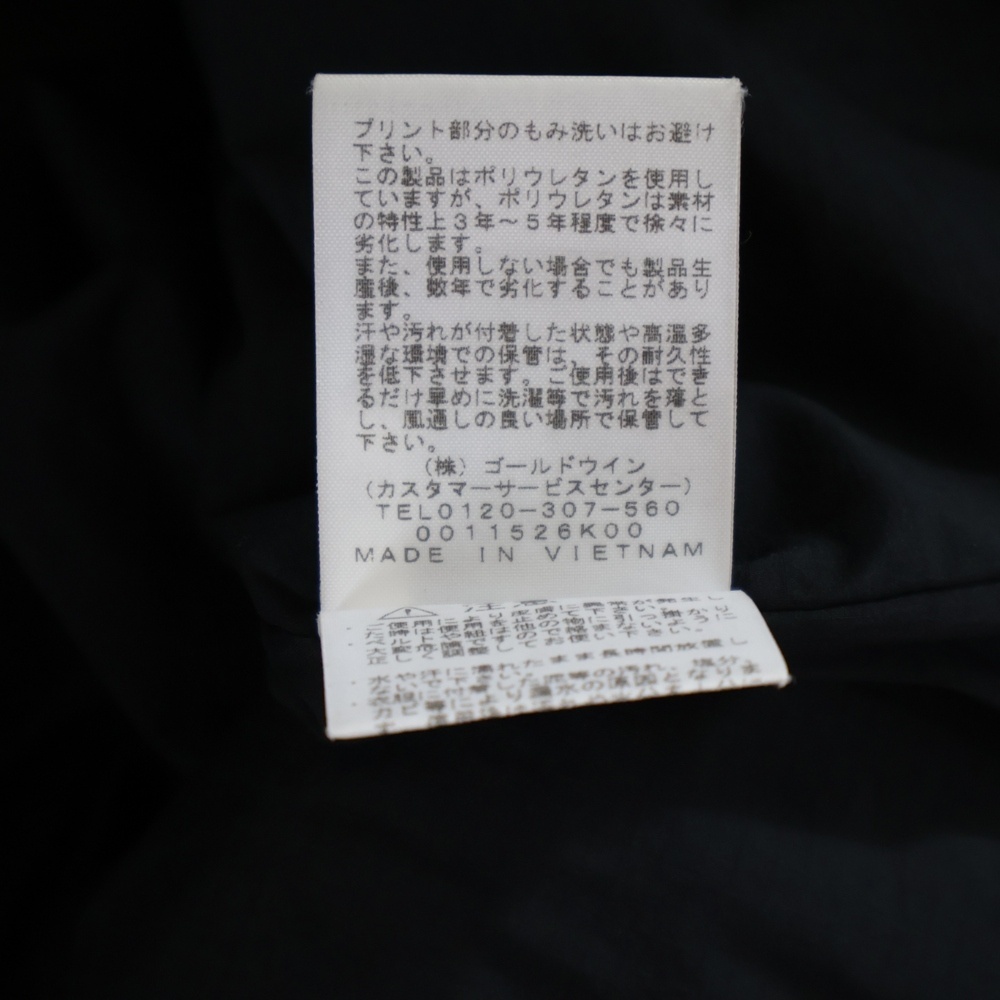 プリント部分のもみ洗いはお避け
下さい。
この製品はポリウレタンを使用し
ていますが、ポリウレタンは素材
の特性上3年～5年程度で徐々に
劣化します。
また、使用しない場合でも製品生
産後、数年で劣化することがあり
ます。
汗や汚れが付着した状態や高温多
湿な環境での保管は、その耐久性
を低下させます。ご使用後はでき
るだけ早めに洗濯等で汚れを落と
し、風通しの良い場所で保管して
下さい。
(株)ゴールドウイン
(カスタマーサービスセンター)
TEL0120-307-560
0011526K00
MADE IN VIETNAM
水や汗に濡れたまま長時間放置し